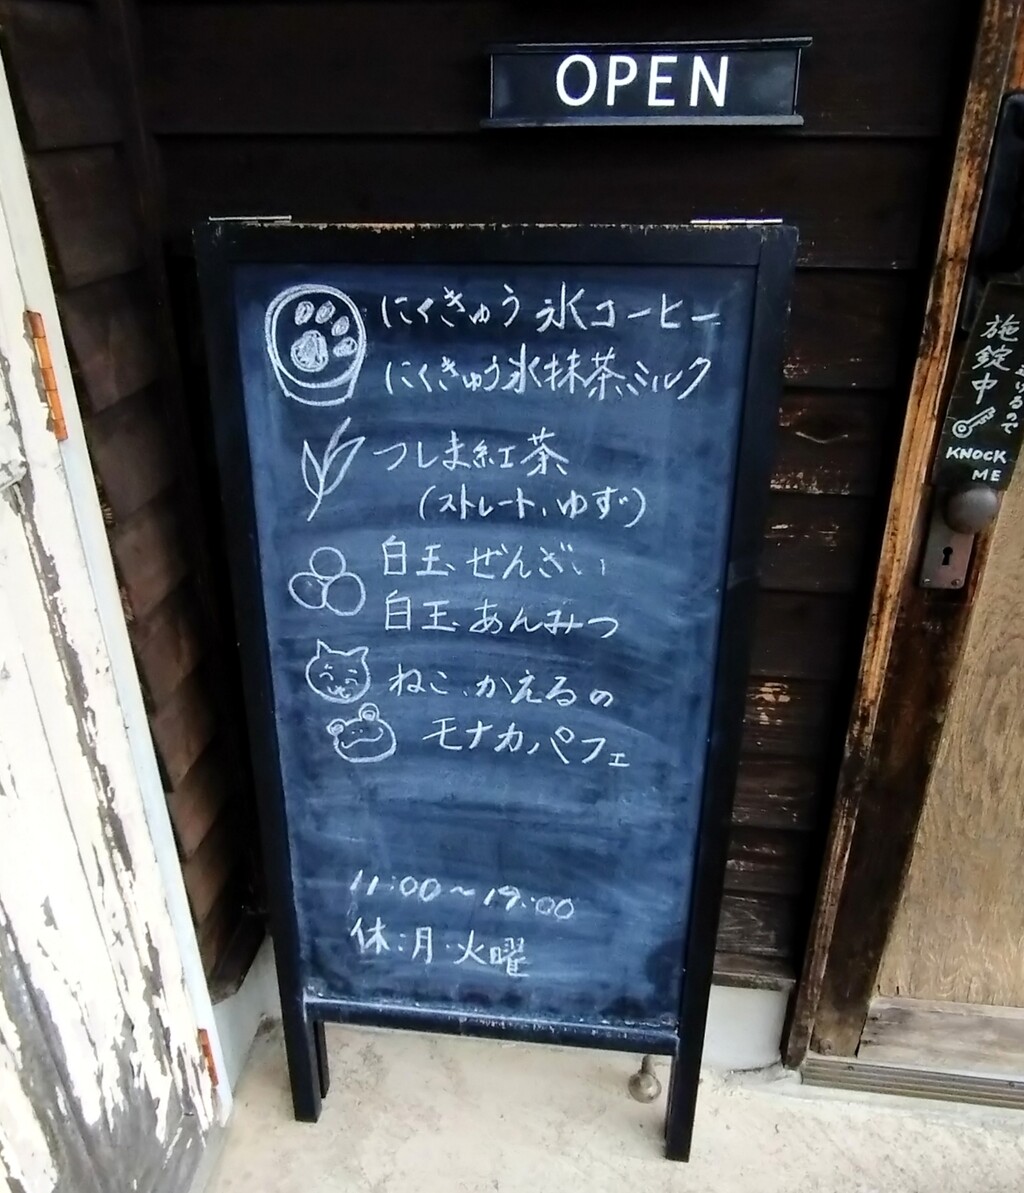 OPEN
にくきゅう氷コーヒー
にくきゅう氷抹茶ミルク
つしま紅茶
(ストレート、ゆず)
白玉、ぜんざい
白玉、あんみつ
ねこ、かえるの
モナカパフェ
11:00～19:00
休:月・火曜
施錠中
いるので
KNOCK
ME